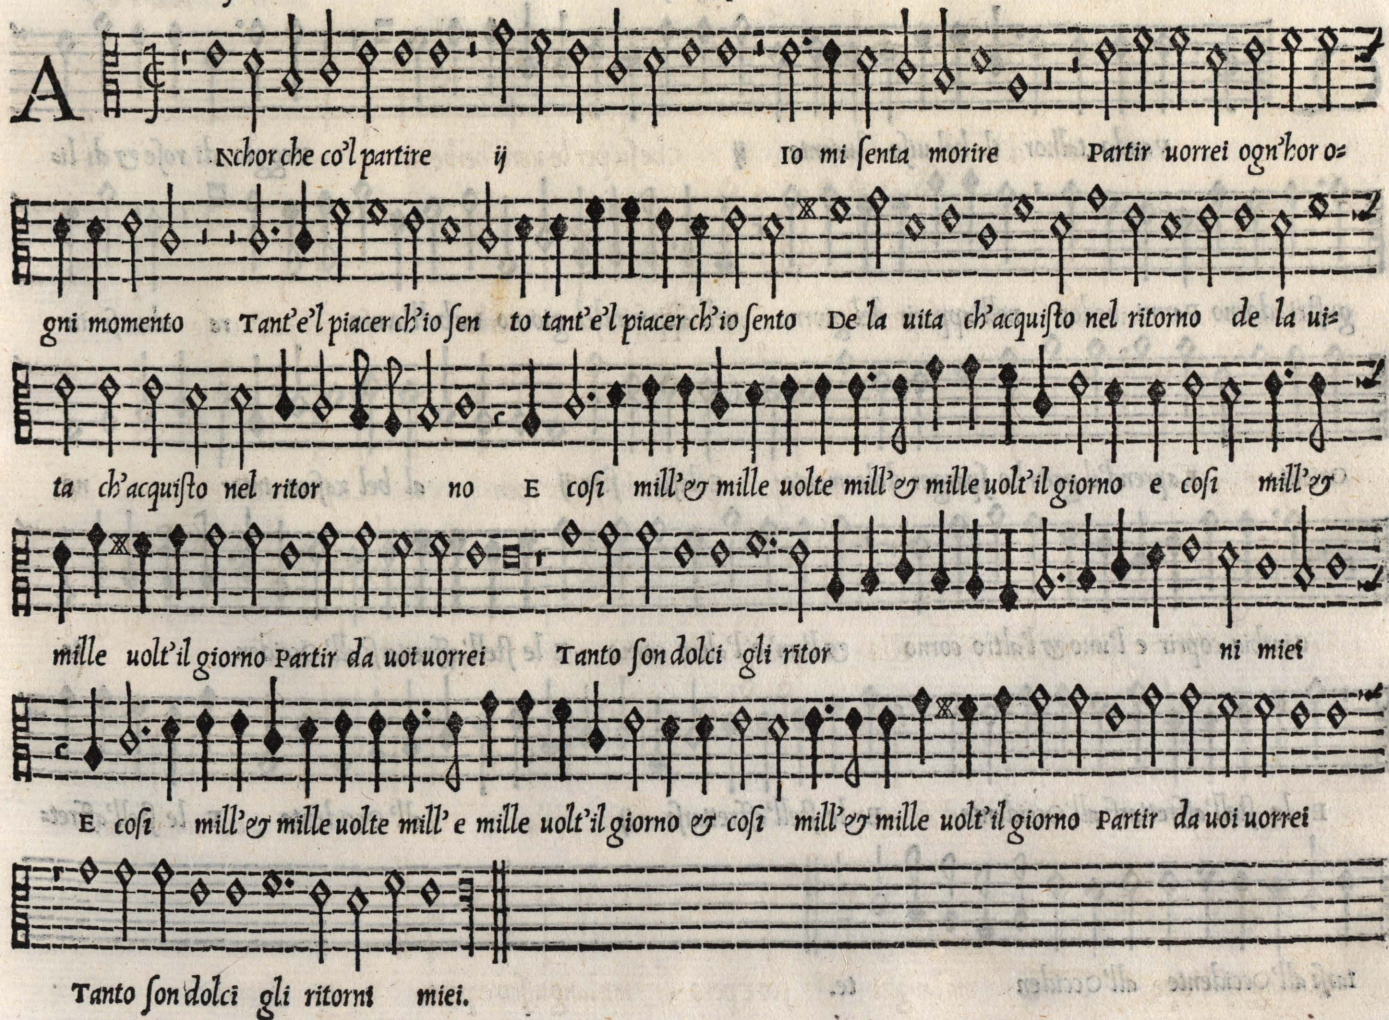 ANchor che co'l partire ij Io mi ſenta morire Partir uorrei ogn'hor o=
gni momento Tant'e'l piacer ch'io ſen to tant'e'l piacer ch'io ſento De la uita ch'acquiſto nel ritorno de la ui=
ta ch'acquiſto nel ritor no E coſi mill'& mille uolte mill'& mille uolt'il giorno e coſi mill'&
mille uolt'il giorno Partir da uoi uorrei Tanto ſon dolci gli ritor ni miei
E coſi mill'& mille uolte mill' e mille uolt'il giorno & coſi mill'& mille uolt'il giorno Partir da uoi uorrei
Tanto ſon dolci gli ritorni miei.